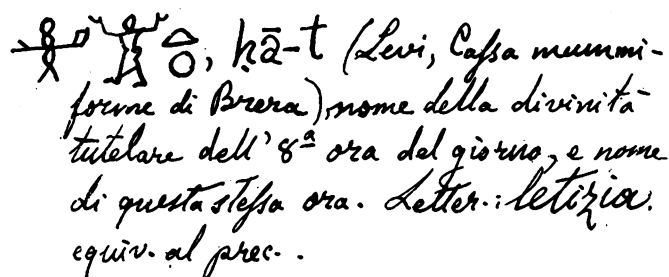 , ḥā-t (Levi, Cassa mummi-
forme di Brera), nome della divinità
tutelare dell' 8ª ora del giorno, e nome
di questa stessa ora. Letter.: letizia.
equiv. al prec..